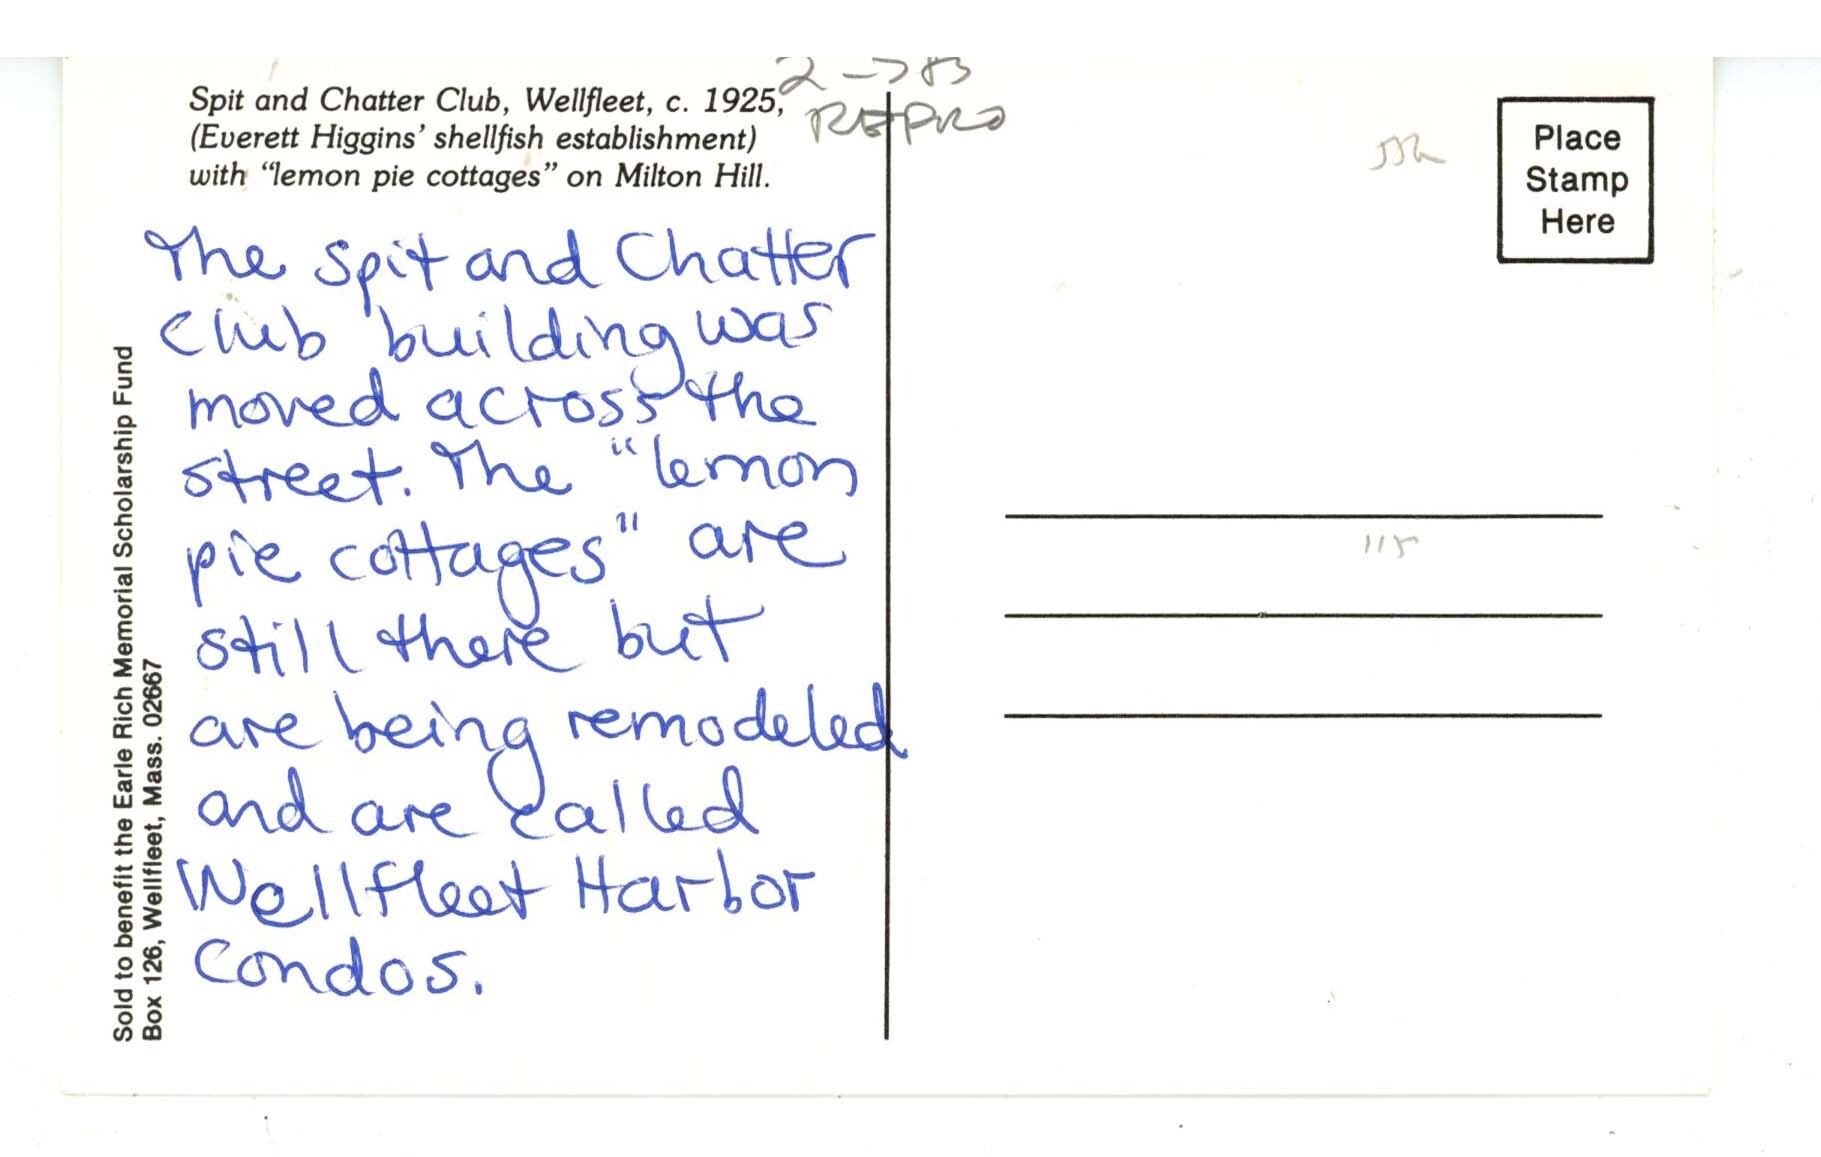 Spit and Chatter Club, Wellfleet, c. 1925,
(Everett Higgins' shellfish establishment)
with "lemon pie cottages" on Milton Hill.
2 → 83
REPRO
The Spit and Chatter
Club building was
moved across the
street. The "lemon
pie cottages" are
still there but
are being remodeled
and are called
Wellfleet Harbor
Condos.
Sold to benefit the Earle Rich Memorial Scholarship Fund
Box 126, Wellfleet, Mass. 02667
Place
Stamp
Here